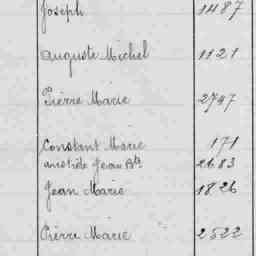 Joseph 1487
Auguste Michel 1121
Pierre Marie 2797
Constant Marie 171
Aristide Jean Bte 2683
Jean Marie 1826
Pierre Marie 2522